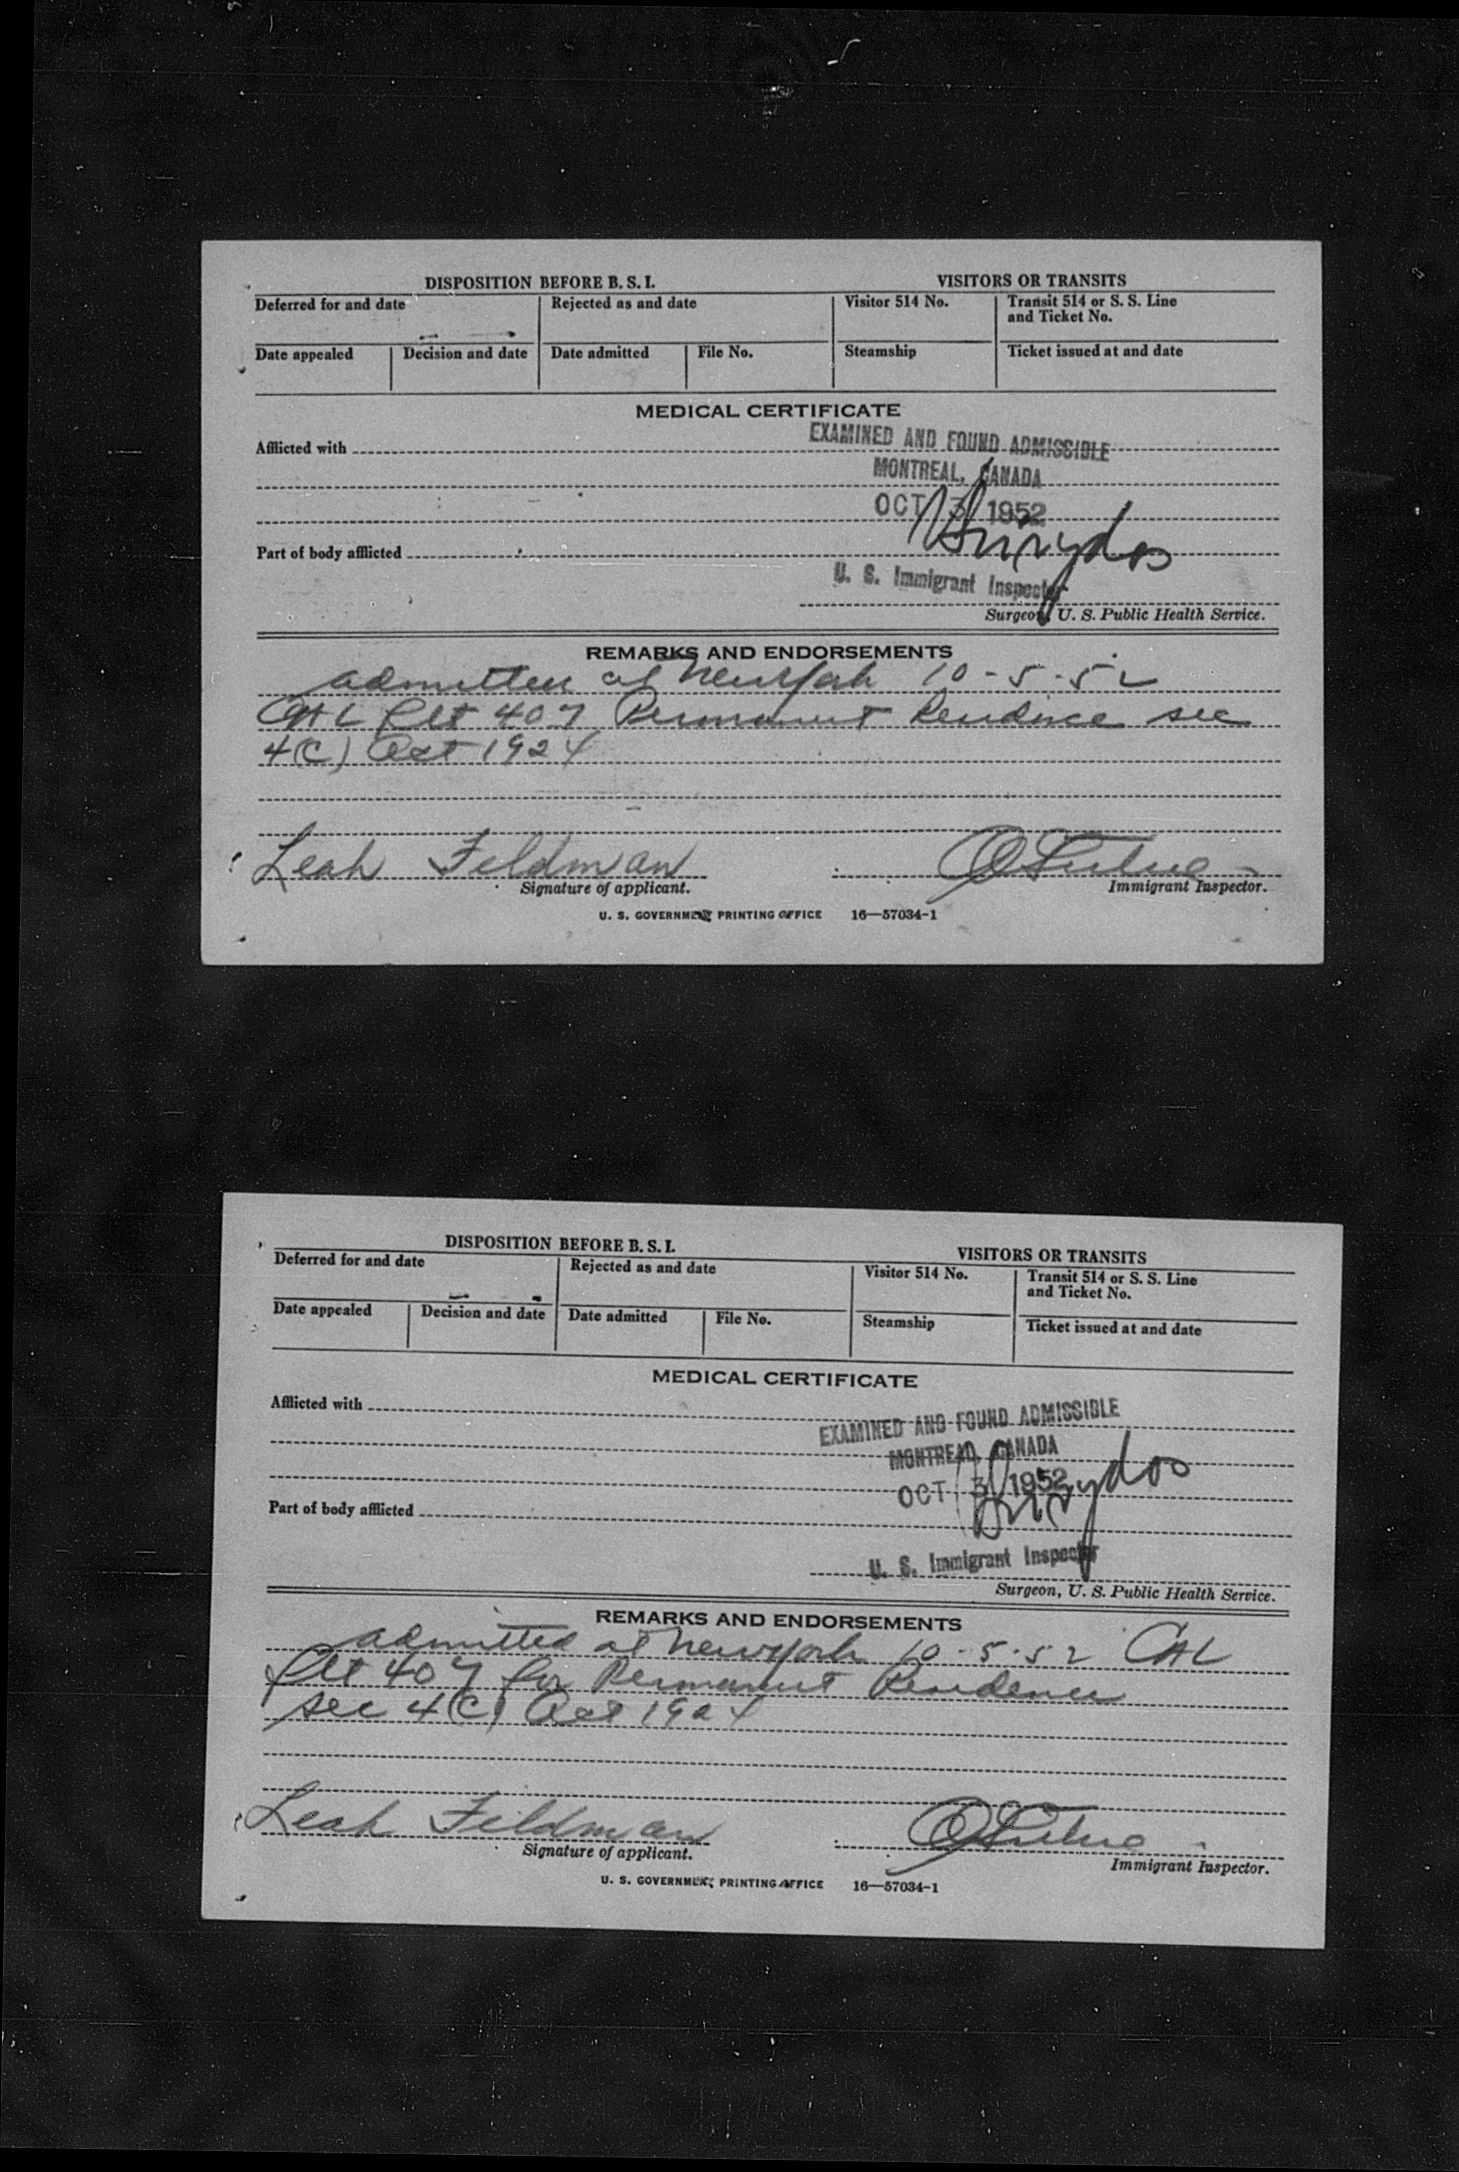 DISPOSITION BEFORE B. S. I. VISITORS OR TRANSITS
Deferred for and date Rejected as and date Visitor 514 No. Transit 514 or S. S. Line
and Ticket No.
Date appealed Decision and date Date admitted File No. Steamship Ticket issued at and date
MEDICAL CERTIFICATE
Afflicted with
EXAMINED AND FOUND ADMISSIBLE
MONTREAL, CANADA
OCT 3 1952
Part of body afflicted
U. S. Immigrant Inspector
Surgeon, U. S. Public Health Service.
REMARKS AND ENDORSEMENTS
admitted at New York 10-5-52
CAL flt 407 Permanent Residence sec
4(C) Act 1924
Leah Feldman
Signature of applicant. Immigrant Inspector.
U. S. GOVERNMENT PRINTING OFFICE 16—57034-1
DISPOSITION BEFORE B. S. I. VISITORS OR TRANSITS
Deferred for and date Rejected as and date Visitor 514 No. Transit 514 or S. S. Line
and Ticket No.
Date appealed Decision and date Date admitted File No. Steamship Ticket issued at and date
MEDICAL CERTIFICATE
Afflicted with
EXAMINED AND FOUND ADMISSIBLE
MONTREAL, CANADA
OCT 3 1952
Part of body afflicted
U. S. Immigrant Inspector
Surgeon, U. S. Public Health Service.
REMARKS AND ENDORSEMENTS
admitted at New York 10-5-52 CAL
flt 407 for Permanent Residence
sec 4(C) Act 1924
Leah Feldman
Signature of applicant. Immigrant Inspector.
U. S. GOVERNMENT PRINTING OFFICE 16—57034-1